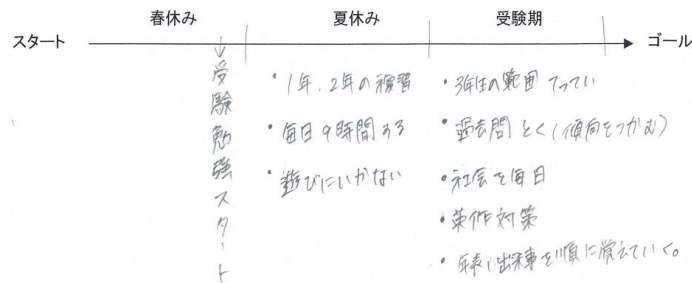 春休み
夏休み
受験期
スタート
ゴール
受験勉強スタート
・1年、2年の復習
・毎日9時間する
・遊びにいかない
・3年生の範囲 てってい
・過去問とく(傾向をつかむ)
・社会を毎日
・英作対策
・年表、出来事を順に覚えていく。